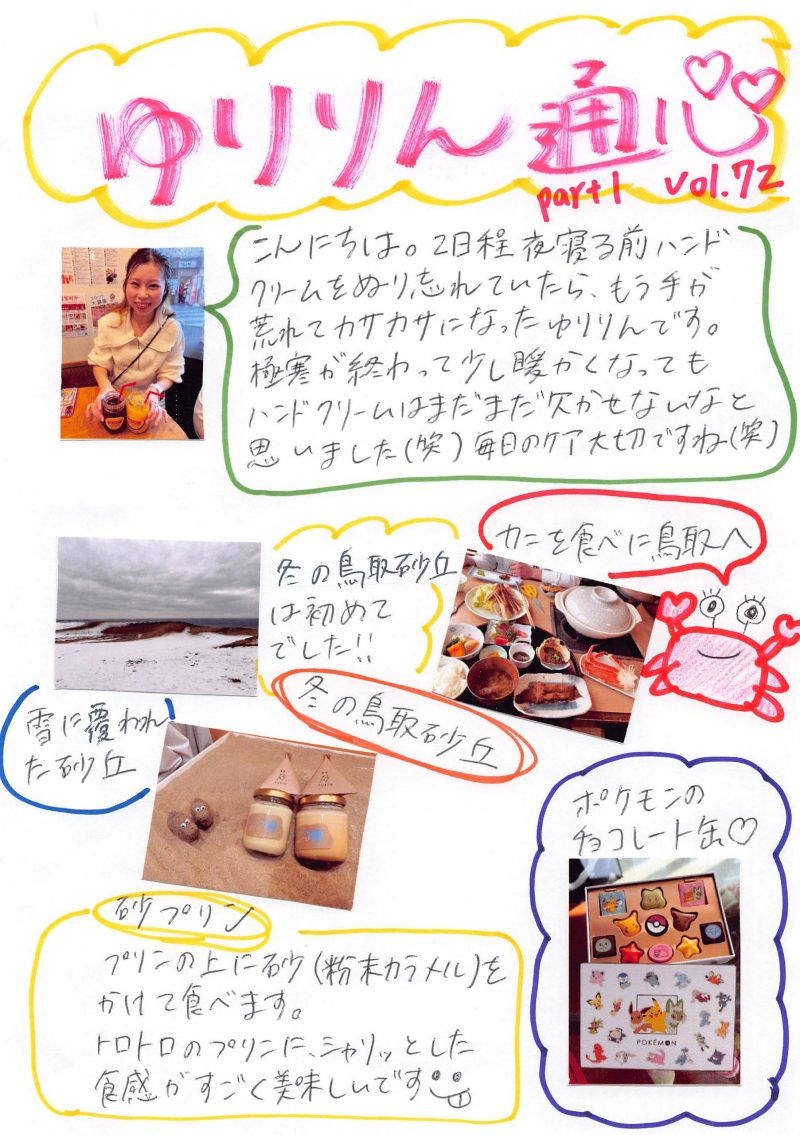 ゆりりん通心
part1 vol.72
こんにちは。2日程夜寝る前ハンド
クリームをぬり忘れていたら、もう手が
荒れてカサカサになったゆりりんです。
極寒が終わって少し暖かくなっても
ハンドクリームはまだまだ欠かせないなと
思いました(笑)毎日のケア大切ですね(笑)
カニを食べに鳥取へ
冬の鳥取砂丘
は初めて
でした!!
冬の鳥取砂丘
雪に覆われ
た砂丘
ポケモンの
チョコレート缶♡
POKÉMON
砂プリン
プリンの上に砂(粉末カラメル)を
かけて食べます。
トロトロのプリンに、シャリッとした
食感がすごく美味しいです